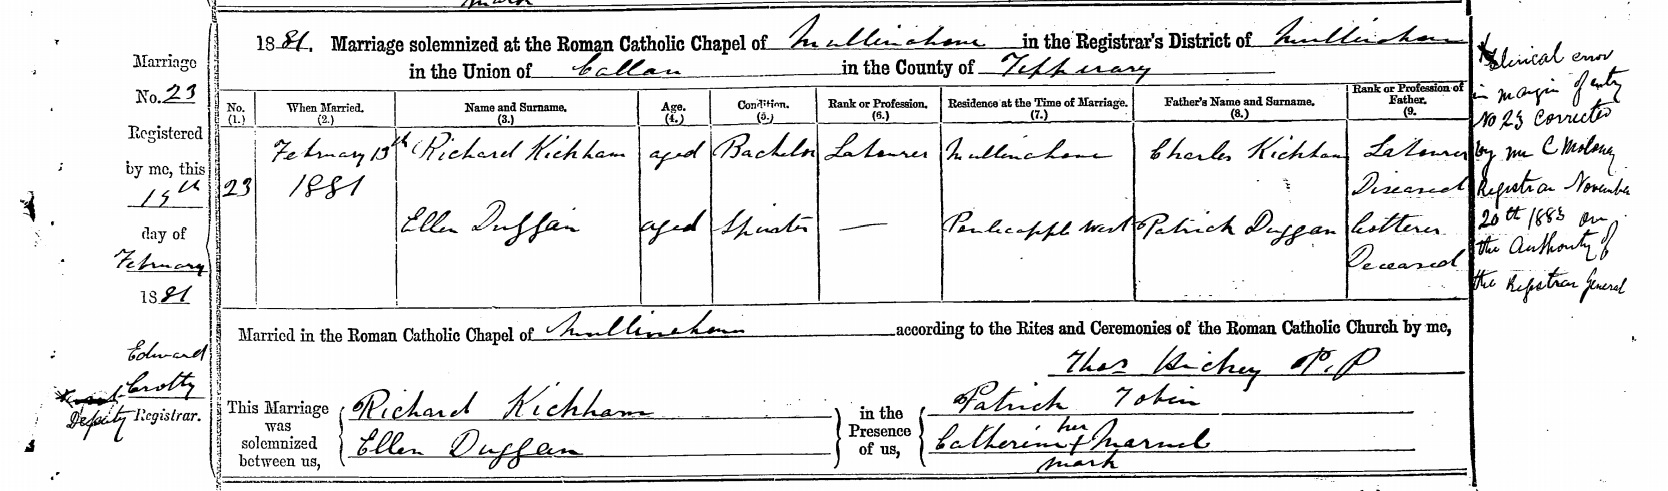 mark
1881. Marriage solemnized at the Roman Catholic Chapel of Mullinahone in the Registrar's District of Mullinahone
in the Union of Callan in the County of Tipperary
No. (1.) When Married. (2.) Name and Surname. (3.) Age. (4.) Condition. (5.) Rank or Profession. (6.) Residence at the Time of Marriage. (7.) Father's Name and Surname. (8.) Rank or Profession of Father. (9.
23 February 13th 1881 Richard Kickham aged Bachelor Labourer Mullinahone Charles Kickham Labourer Diseased
Ellen Duggan aged Spinster — West Patrick Duggan Cotterer Deceased
Married in the Roman Catholic Chapel of Mullinahone according to the Rites and Ceremonies of the Roman Catholic Church by me,
Thos Hickey P.P
This Marriage was solemnized between us,
Richard Kickham
Ellen Duggan
in the Presence of us,
Patrick Tobin
Catherine her x mark
Marriage
No. 23
Registered
by me, this
15th
day of
February
1881
Edward
Crotty
Deputy Registrar.
Clerical error
in margin of entry
No 23 corrected
by me C Molony
Registrar November
20th 1883 on
the Authority of
the Registrar General